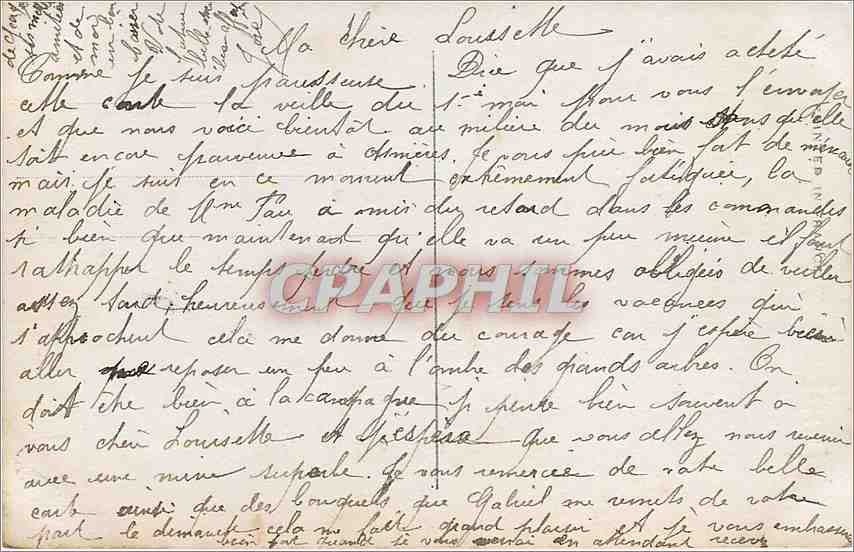 Ma chère Lousette
Comme je suis paresseuse. Dire que j'avais acheté
cette carte la veille du 1er mai pour vous l'envoyer
et que nous voici bientôt au milieu du mois sans qu'elle
soit encore parvenue à Asnières. Je vous prie bien fort de m'excuser
mais je suis en ce moment extrêmement fatiguée, la
maladie de Mme Fau a amis du retard dans les commandes
si bien que maintenant qu'elle va un peu mieux il faut
rathapper le temps perdre et nous sommes obligées de veiller
assez tard, heureusement que je sens les vacances qui
s'approchent cela me donne du courage car j'espère bien
aller me reposer un peu à l'ombre des grands arbres. On
doit être bien à la campagne je pense bien souvent à
vous chère Louisette et j'espère que vous allez nous revenir
avec une mine superbe. Je vous remercie de votre belle
carte ainsi que des bouquets que Gabriel me remets de votre
part le dimanche cela me fait grand plaisir et je vous embrasserai
bien fort quand je vous verrai en attendant recevez
de
amitiés
et de
moi
un bon
baiser
CPAPHIL